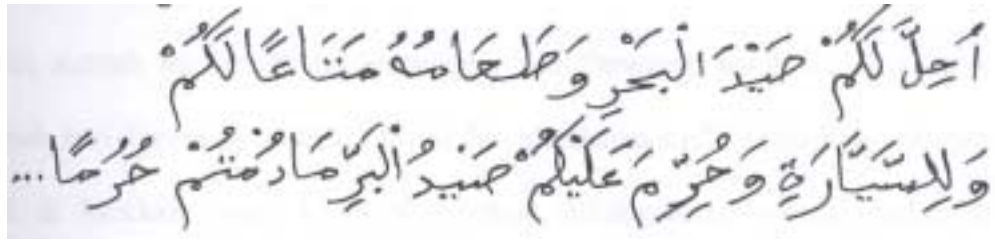 أُحِلَّ لَكُمْ صَيْدَ الْبَحْرِ وَطَعَامُهُ مَتَاعًا لَكُمْ
وَلِلسَّيَّارَةِ وَحُرِّمَ عَلَيْكُمْ صَيْدُ الْبَرِّ مَا دُمْتُمْ حُرُمًا...